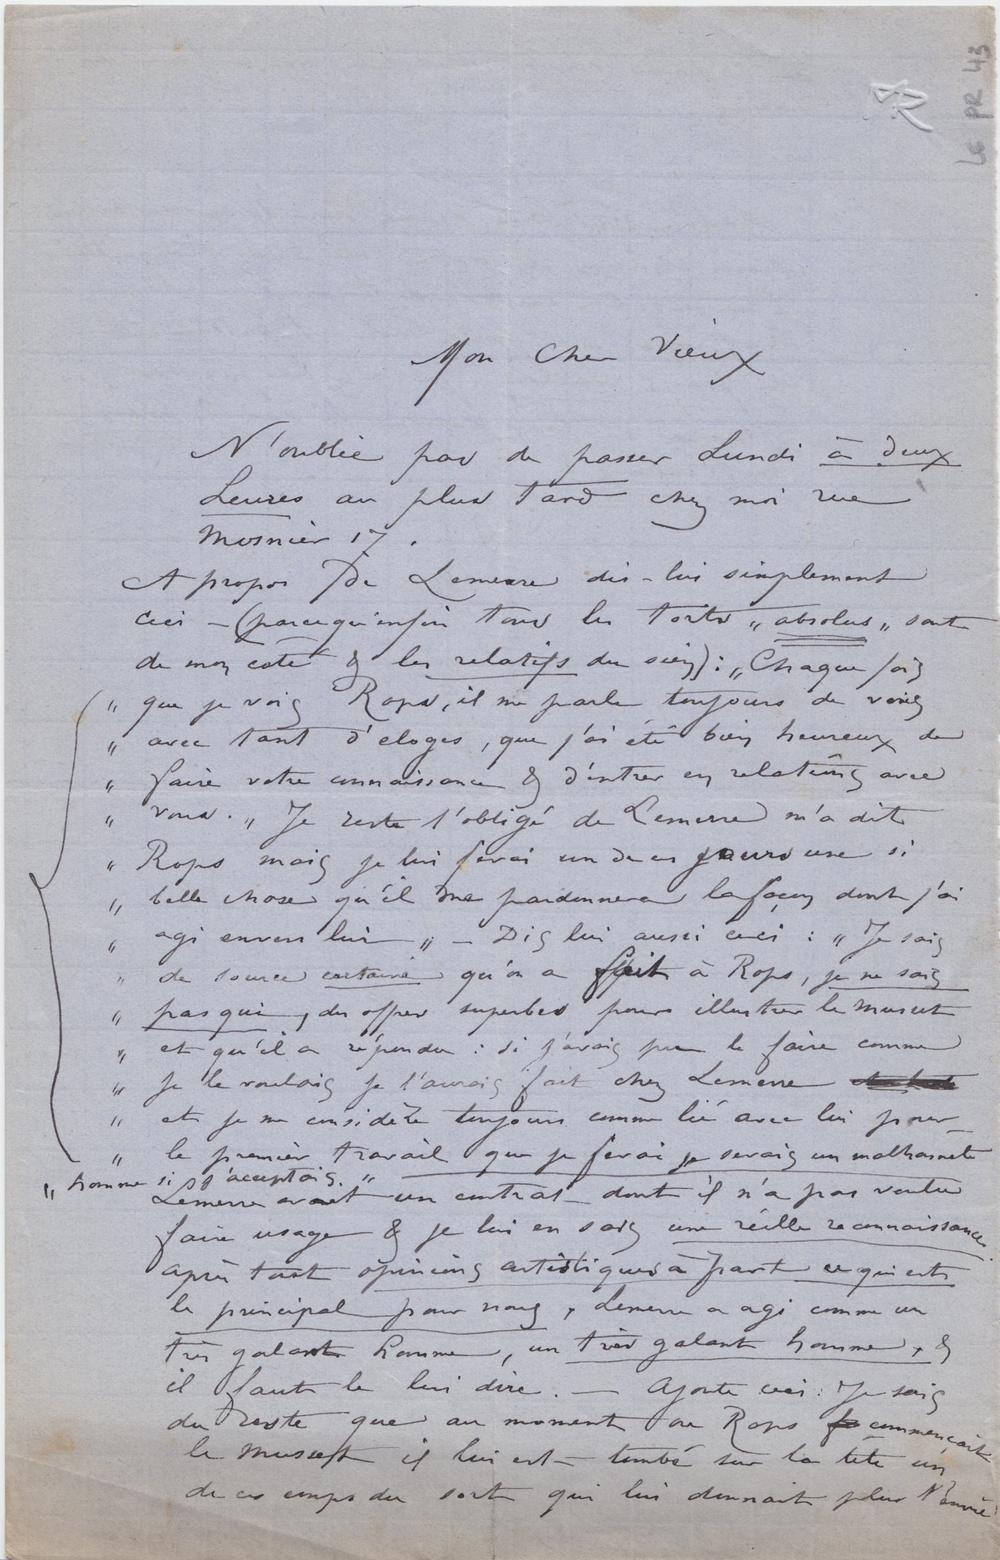 LE PR 43
Mon Cher Vieux
N'oublie pas de passer Lundi à deux
heures au plus tard chez moi rue
Mosnier 17.
A propos de Lemerre dis-lui simplement
ceci – (parcequ'enfin tous les torts „ absolus „ sont
de mon coté & les relatifs du sien) : „ Chaque fois
„ que je vois Rops, il me parle toujours de vous
„ avec tant d'eloges, que j'ai été bien heureux de
„ faire votre connaissance & d'entrer en relations avec
„ vous. „ Je reste l'obligé de Lemerre m'a dit
„ Rops mais je lui ferai un de ces jours une si
„ belle chose qu'il me pardonnera la façon dont j'ai
„ agi envers lui „ – Dis lui aussi ceci : „ Je sais
„ de source certaine qu'on a fait à Rops, je ne sais
„ pas qui, des offres superbes pour illustrer le Musset
„ et qu'il a répondu : si j'avais pu le faire comme
„ je le voulais je l'aurais fait chez Lemerre
„ et je me considère toujours comme lié avec lui pour
„ le premier travail que je ferai je serais un malhonnête
„ homme si j'acceptais. „
Lemerre avait un contrat dont il n'a pas voulu
faire usage & je lui en sais une réelle reconnaissance.
après tout opinions artistiques à part ce qui est
le principal pour nous, Lemerre a agi comme un
très galant homme, un très galant homme, &
il faut le lui dire. — Ajoute ceci : Je sais
du reste que au moment ou Rops commençait
le Musset il lui est tombé sur la tête un
de ces coups du sort qui lui donnait plus d'envie